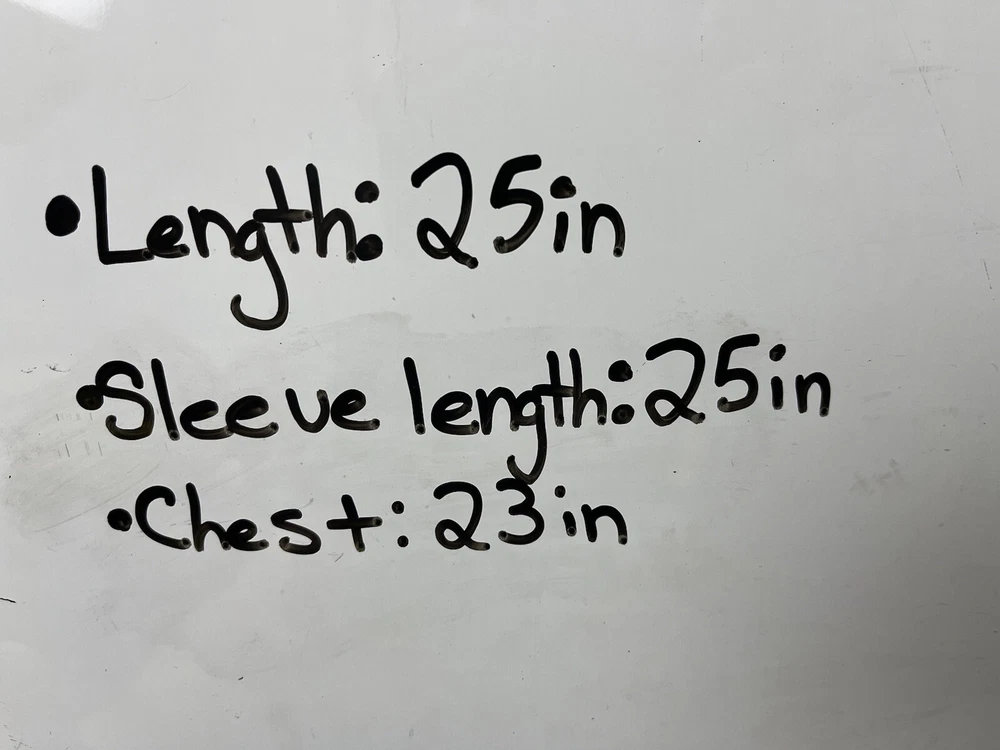 •Length: 25in
•Sleeve length: 25in
•Chest: 23in